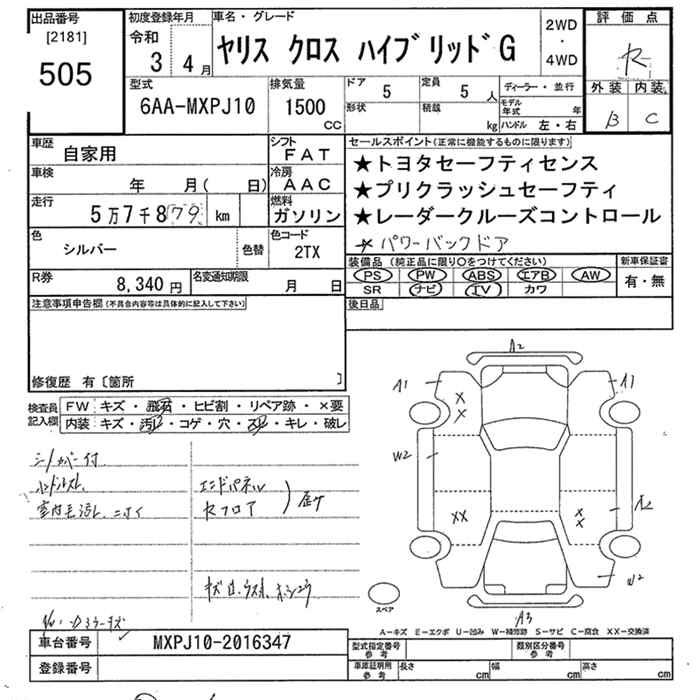 出品番号
[2181]
505
初度登録年月
令和
3 4 月
車名・グレード
ヤリス クロス ハイブリッド G
2WD
・
4WD
評価点
R
外装 内装
B C
型式
6AA-MXPJ10
排気量
1500
CC
ドア
5
定員
5 人
形状
積載
kg
ディーラー・並行
モデル年式 年
ハンドル 左・右
車歴
自家用
シフト
FAT
車検
年 月( 日)
冷房
AAC
走行
5万7千879 km
燃料
ガソリン
色
シルバー
色替
色コード
2TX
R券
8,340 円
名変通知期限
月 日
セールスポイント(正常に機能するものに限ります)
★トヨタセーフティセンス
★プリクラッシュセーフティ
★レーダークルーズコントロール
★パワーバックドア
装備品(純正品に限り○をつけてください)
PS PW ABS エアB AW
SR ナビ TV カワ
新車保証書
有・無
後日品
注意事項申告欄(不具合内容等は具体的に記入して下さい)
修復歴 有〔箇所 〕
検査員記入欄
FW キズ・飛石・ヒビ割・リペア跡・×要
内装 キズ・汚レ・コゲ・穴・スレ・キレ・破レ
シートカバー付
ハンドルスレ
室内毛汚レ、ニオイ
エンドパネル
セフロア
A2
A1
A1
X
X
W2
A2
XX
X
X
W2
A3
スペア
A-キズ E-エクボ U-凹み W-補修跡 S-サビ C-腐食 XX-交換済
車台番号
MXPJ10-2016347
登録番号
型式指定番号
参考
類別区分番号
参考
車庫証明用
参考
長さ cm
幅 cm
高さ cm